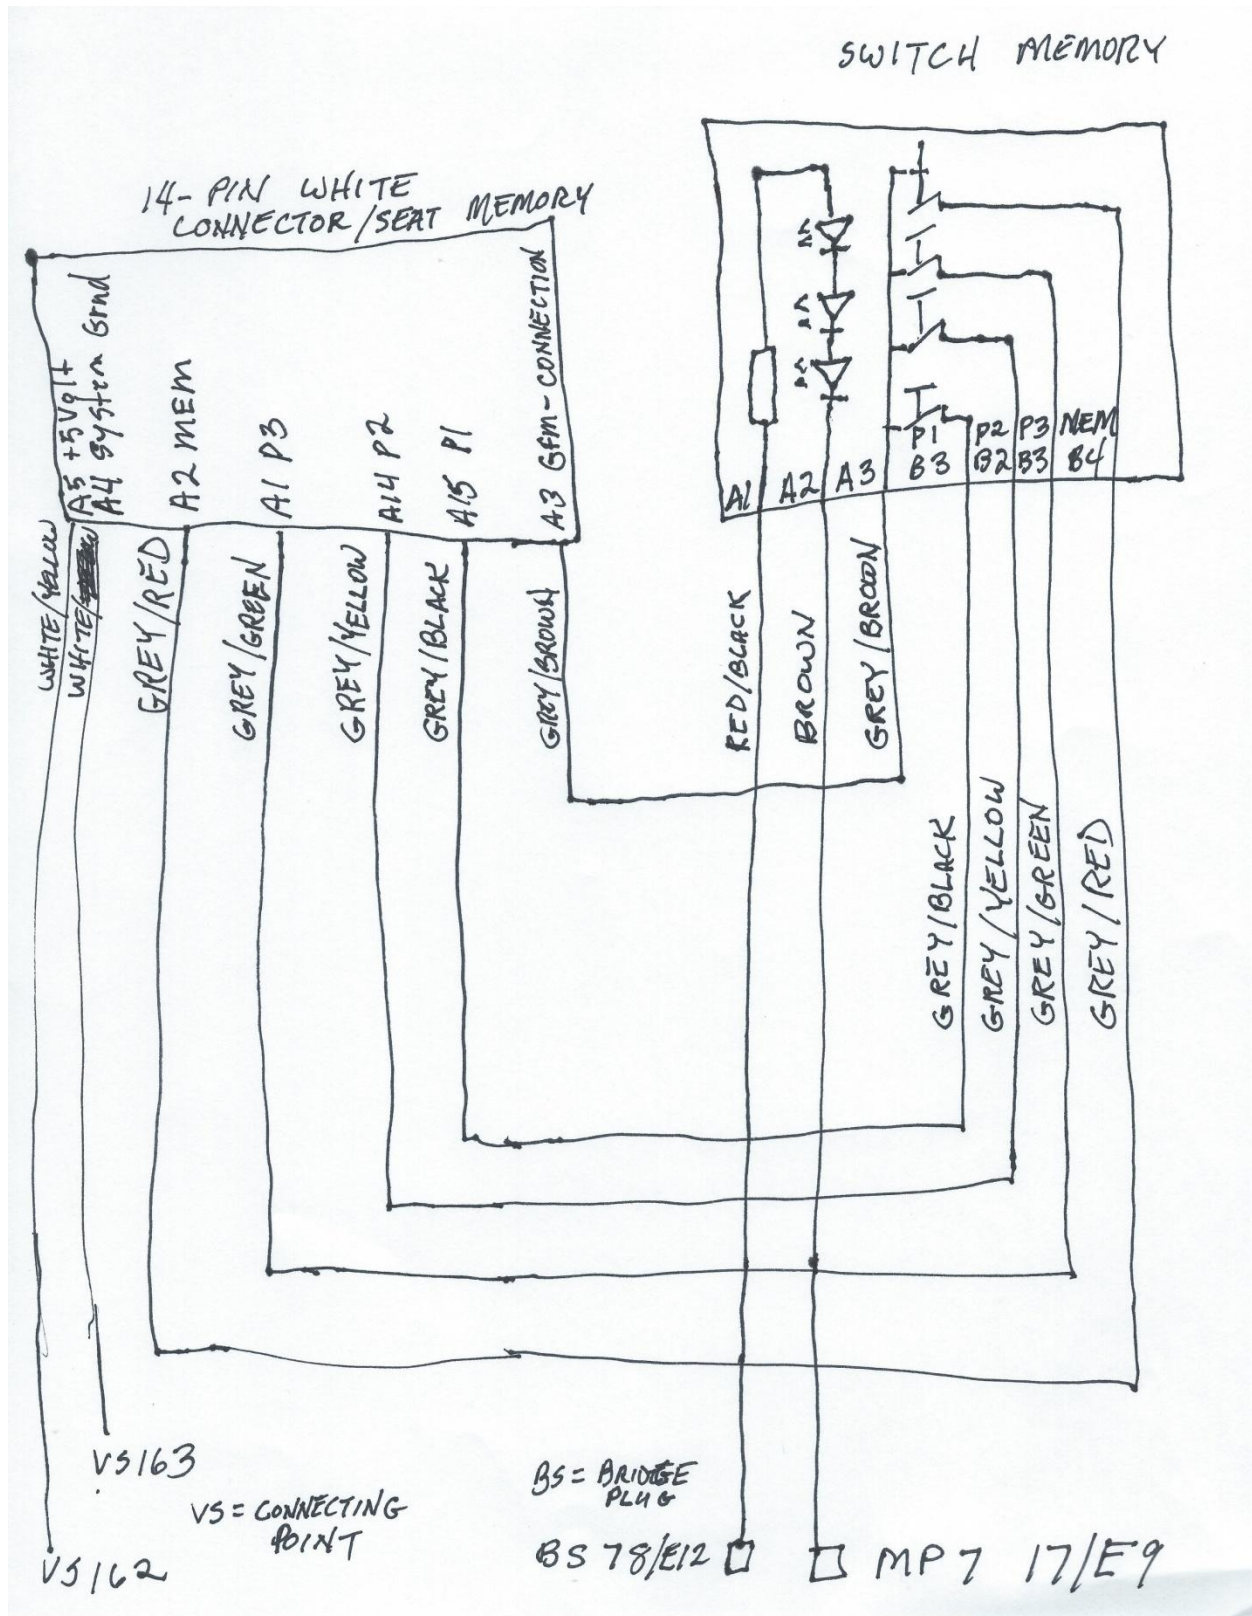 SWITCH MEMORY
14-PIN WHITE
CONNECTOR/SEAT MEMORY
A5 +5Volt
A4 System Grnd
A2 MEM
A1 P3
A14 P2
A15 P1
A3 Gem-CONNECTION
A1
A2
A3
P1
B3
P2
B2
P3
B3
MEM
B4
WHITE/YELLOW
WHITE/
GREY/RED
GREY/GREEN
GREY/YELLOW
GREY/BLACK
GREY/BROWN
RED/BLACK
BROWN
GREY/BROWN
GREY/BLACK
GREY/YELLOW
GREY/GREEN
GREY/RED
VS163
VS = CONNECTING
POINT
VS162
BS = BRIDGE
PLUG
BS 78/E12
MP7 17/E9